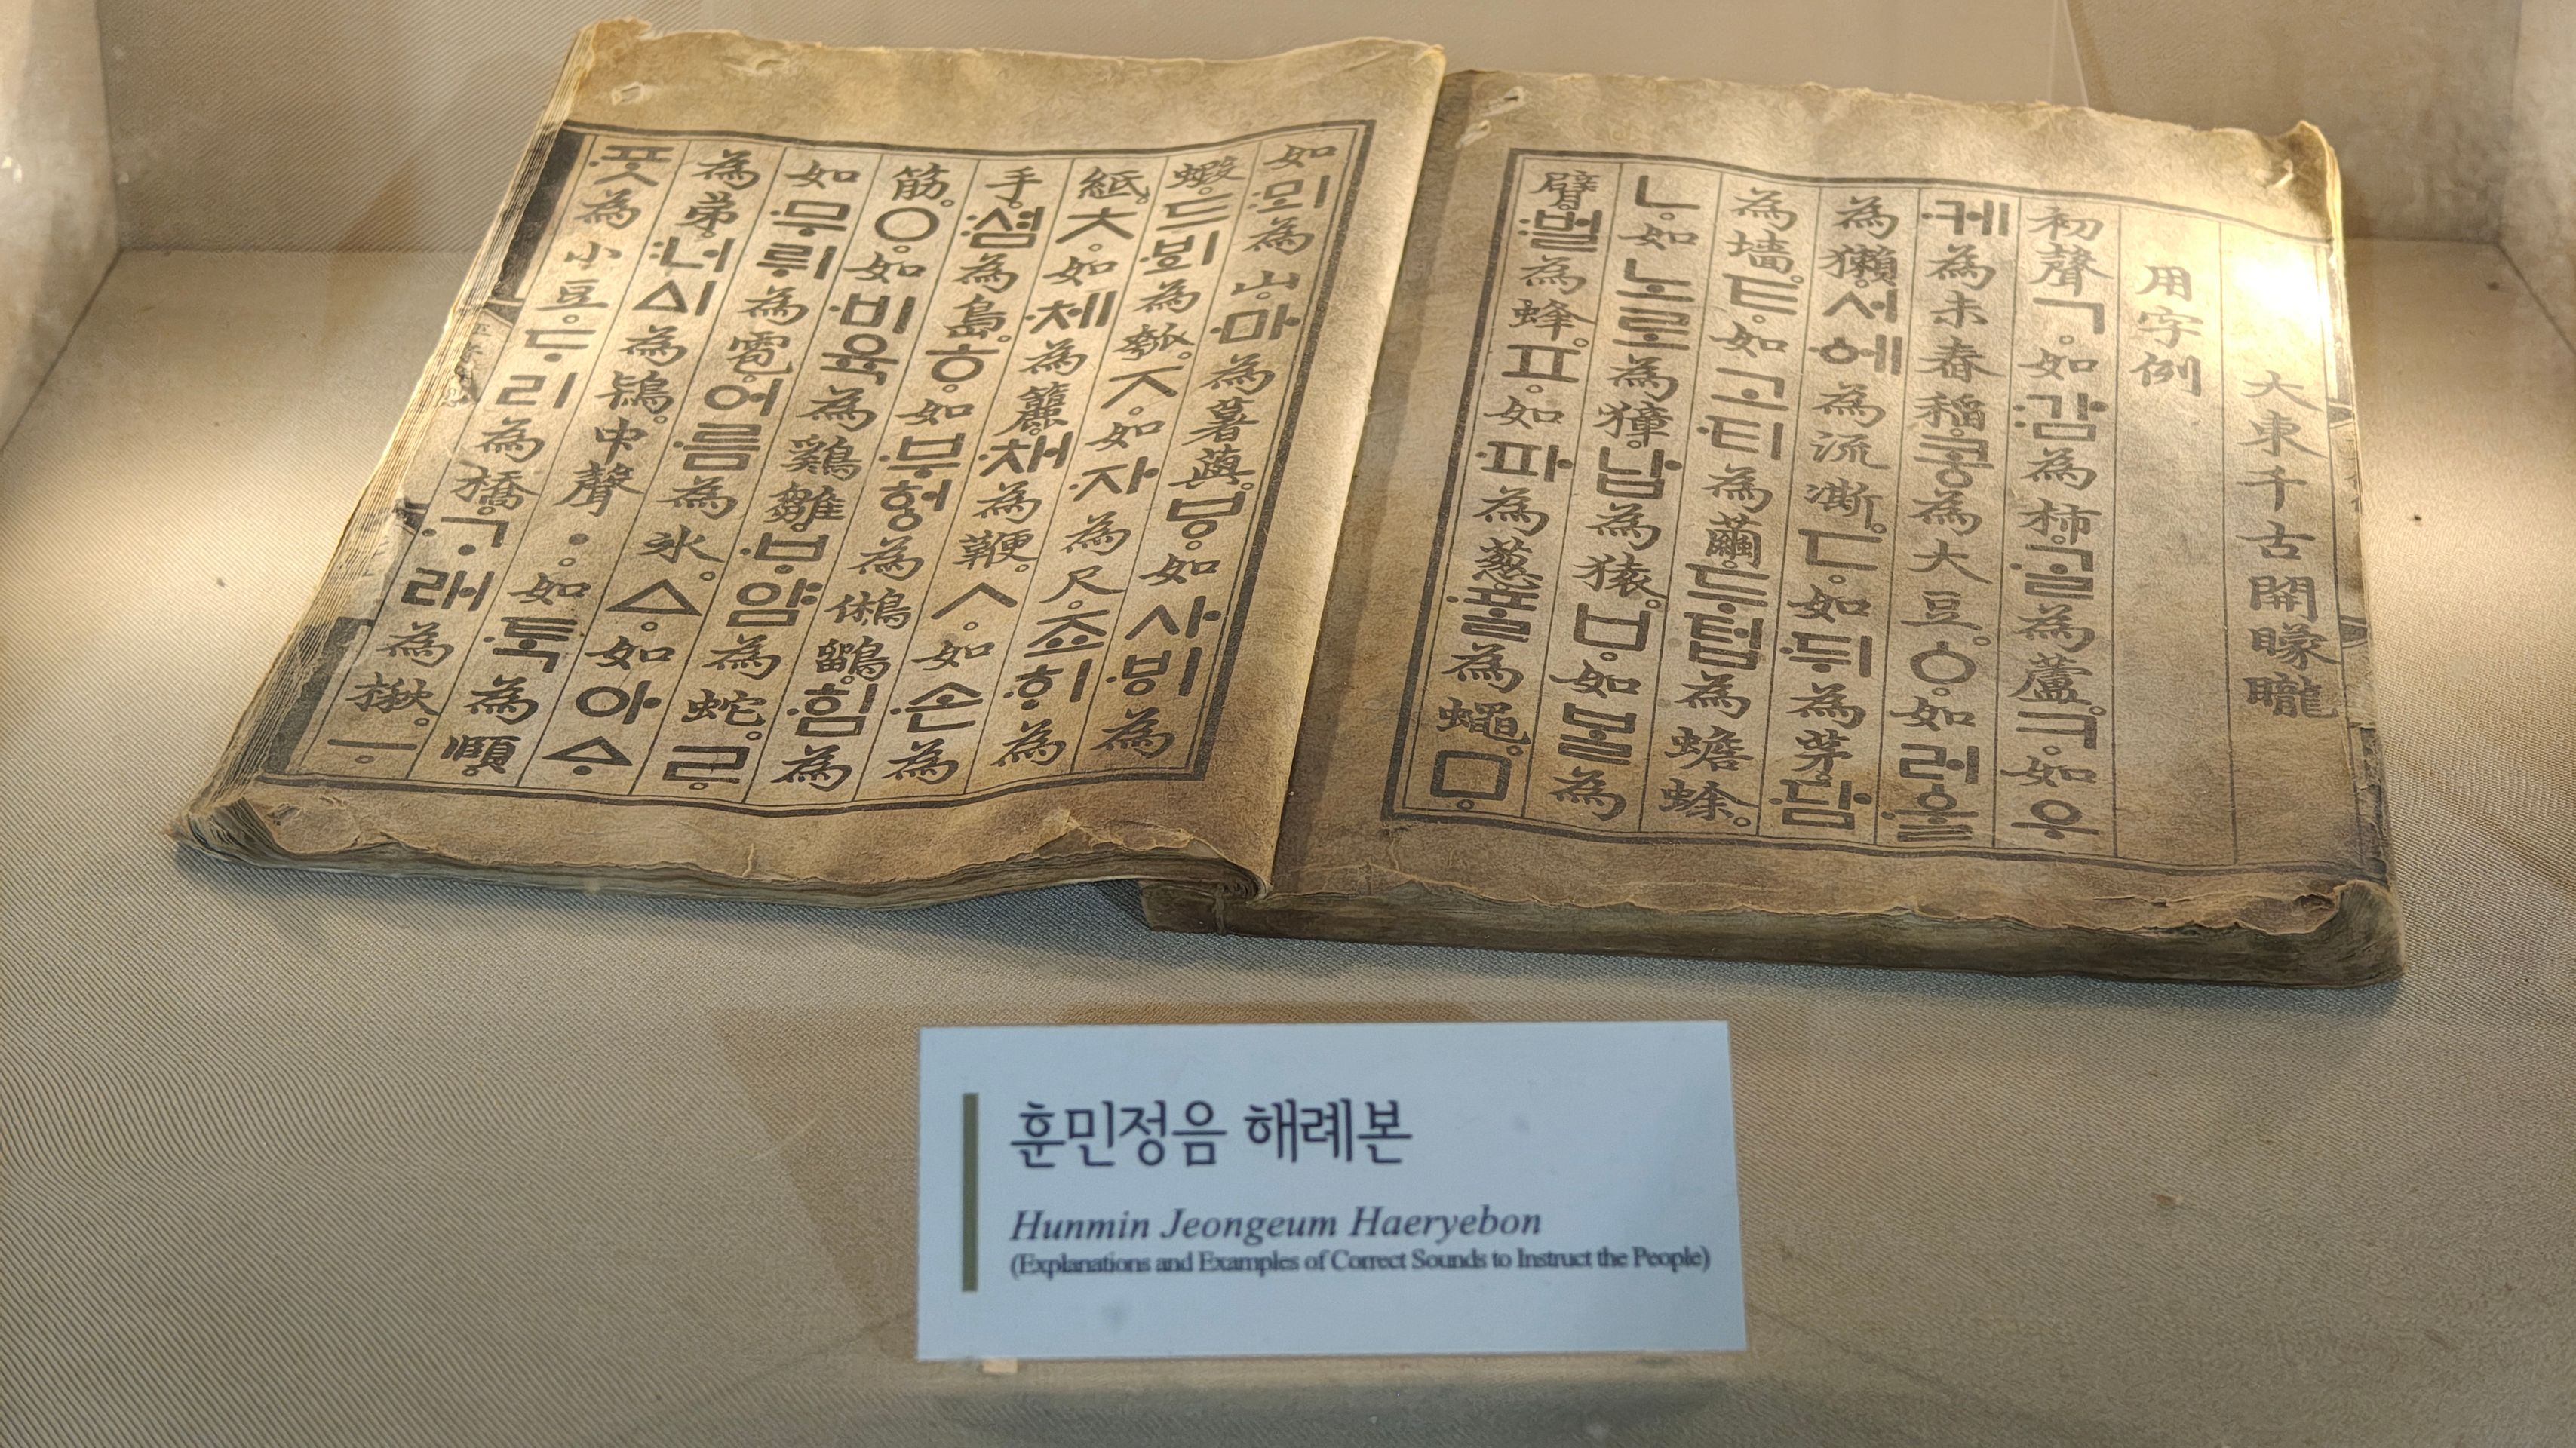 大東千古開矇矓
用字例
初聲ㄱ。如감為柿。ᄀᆞᆯ為蘆。ㅋ。如우
케為未舂稻。콩為大豆。ㆁ。如러ᅌᅮᆯ
為獺。서ᅌᅦ為流凘。ㄷ。如뒤為茅。담
為墻。ㅌ。如고티為繭。두텁為蟾蜍。
ㄴ。如노로為獐。납為猿。ㅂ。如ᄇᆞᆯ為
臂。벌為蜂。ㅍ。如파為葱。ᄑᆞᆯ為蠅。ㅁ。
如뫼為山。마為薯藇。ㅸ。如사ᄫᅵ為
蝦。드ᄫᅴ為瓠。ㅈ。如자為尺。죠ᄒᆡ為
紙。ㅊ。如체為籭。채為鞭。ㅅ。如손為
手。셤為島。ㅎ。如부헝為鵂鶹。힘為
筋。ㅇ。如비육為鷄雛。ᄇᆞ얌為蛇。ㄹ。
如무뤼為雹。어름為氷。ㅿ。如아ᅀᆞ
為弟。너ᅀᅵ為鴇。中聲ㆍ。如ᄐᆞᆨ為頤。
ᄑᆞᆺ為小豆。ᄃᆞ리為橋。ᄀᆞ래為楸。ㅡ。
훈민정음 해례본
Hunmin Jeongeum Haeryebon
(Explanations and Examples of Correct Sounds to Instruct the People)